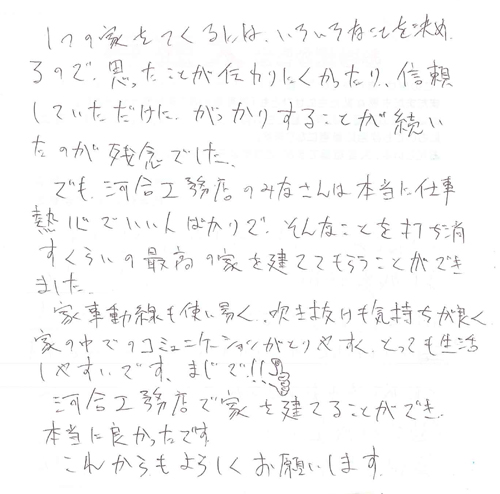 1つの家をつくるには、いろいろなことを決め
るので、思ったことが伝わりにくかったり、信頼
していただけに、がっかりすることが続い
たのが残念でした。
でも、河合工務店のみなさんは本当に仕事
熱心でいい人ばかりで、そんなことを打ち消
すくらいの最高の家を建ててもらうことができ
ました。
家事動線も使い易く、吹き抜けも気持ちが良く、
家の中でのコミュニケーションがとりやすく、とっても生活
しやすいです。まじで!!
河合工務店で家を建てることができ、
本当に良かったです。
これからもよろしくお願いします。